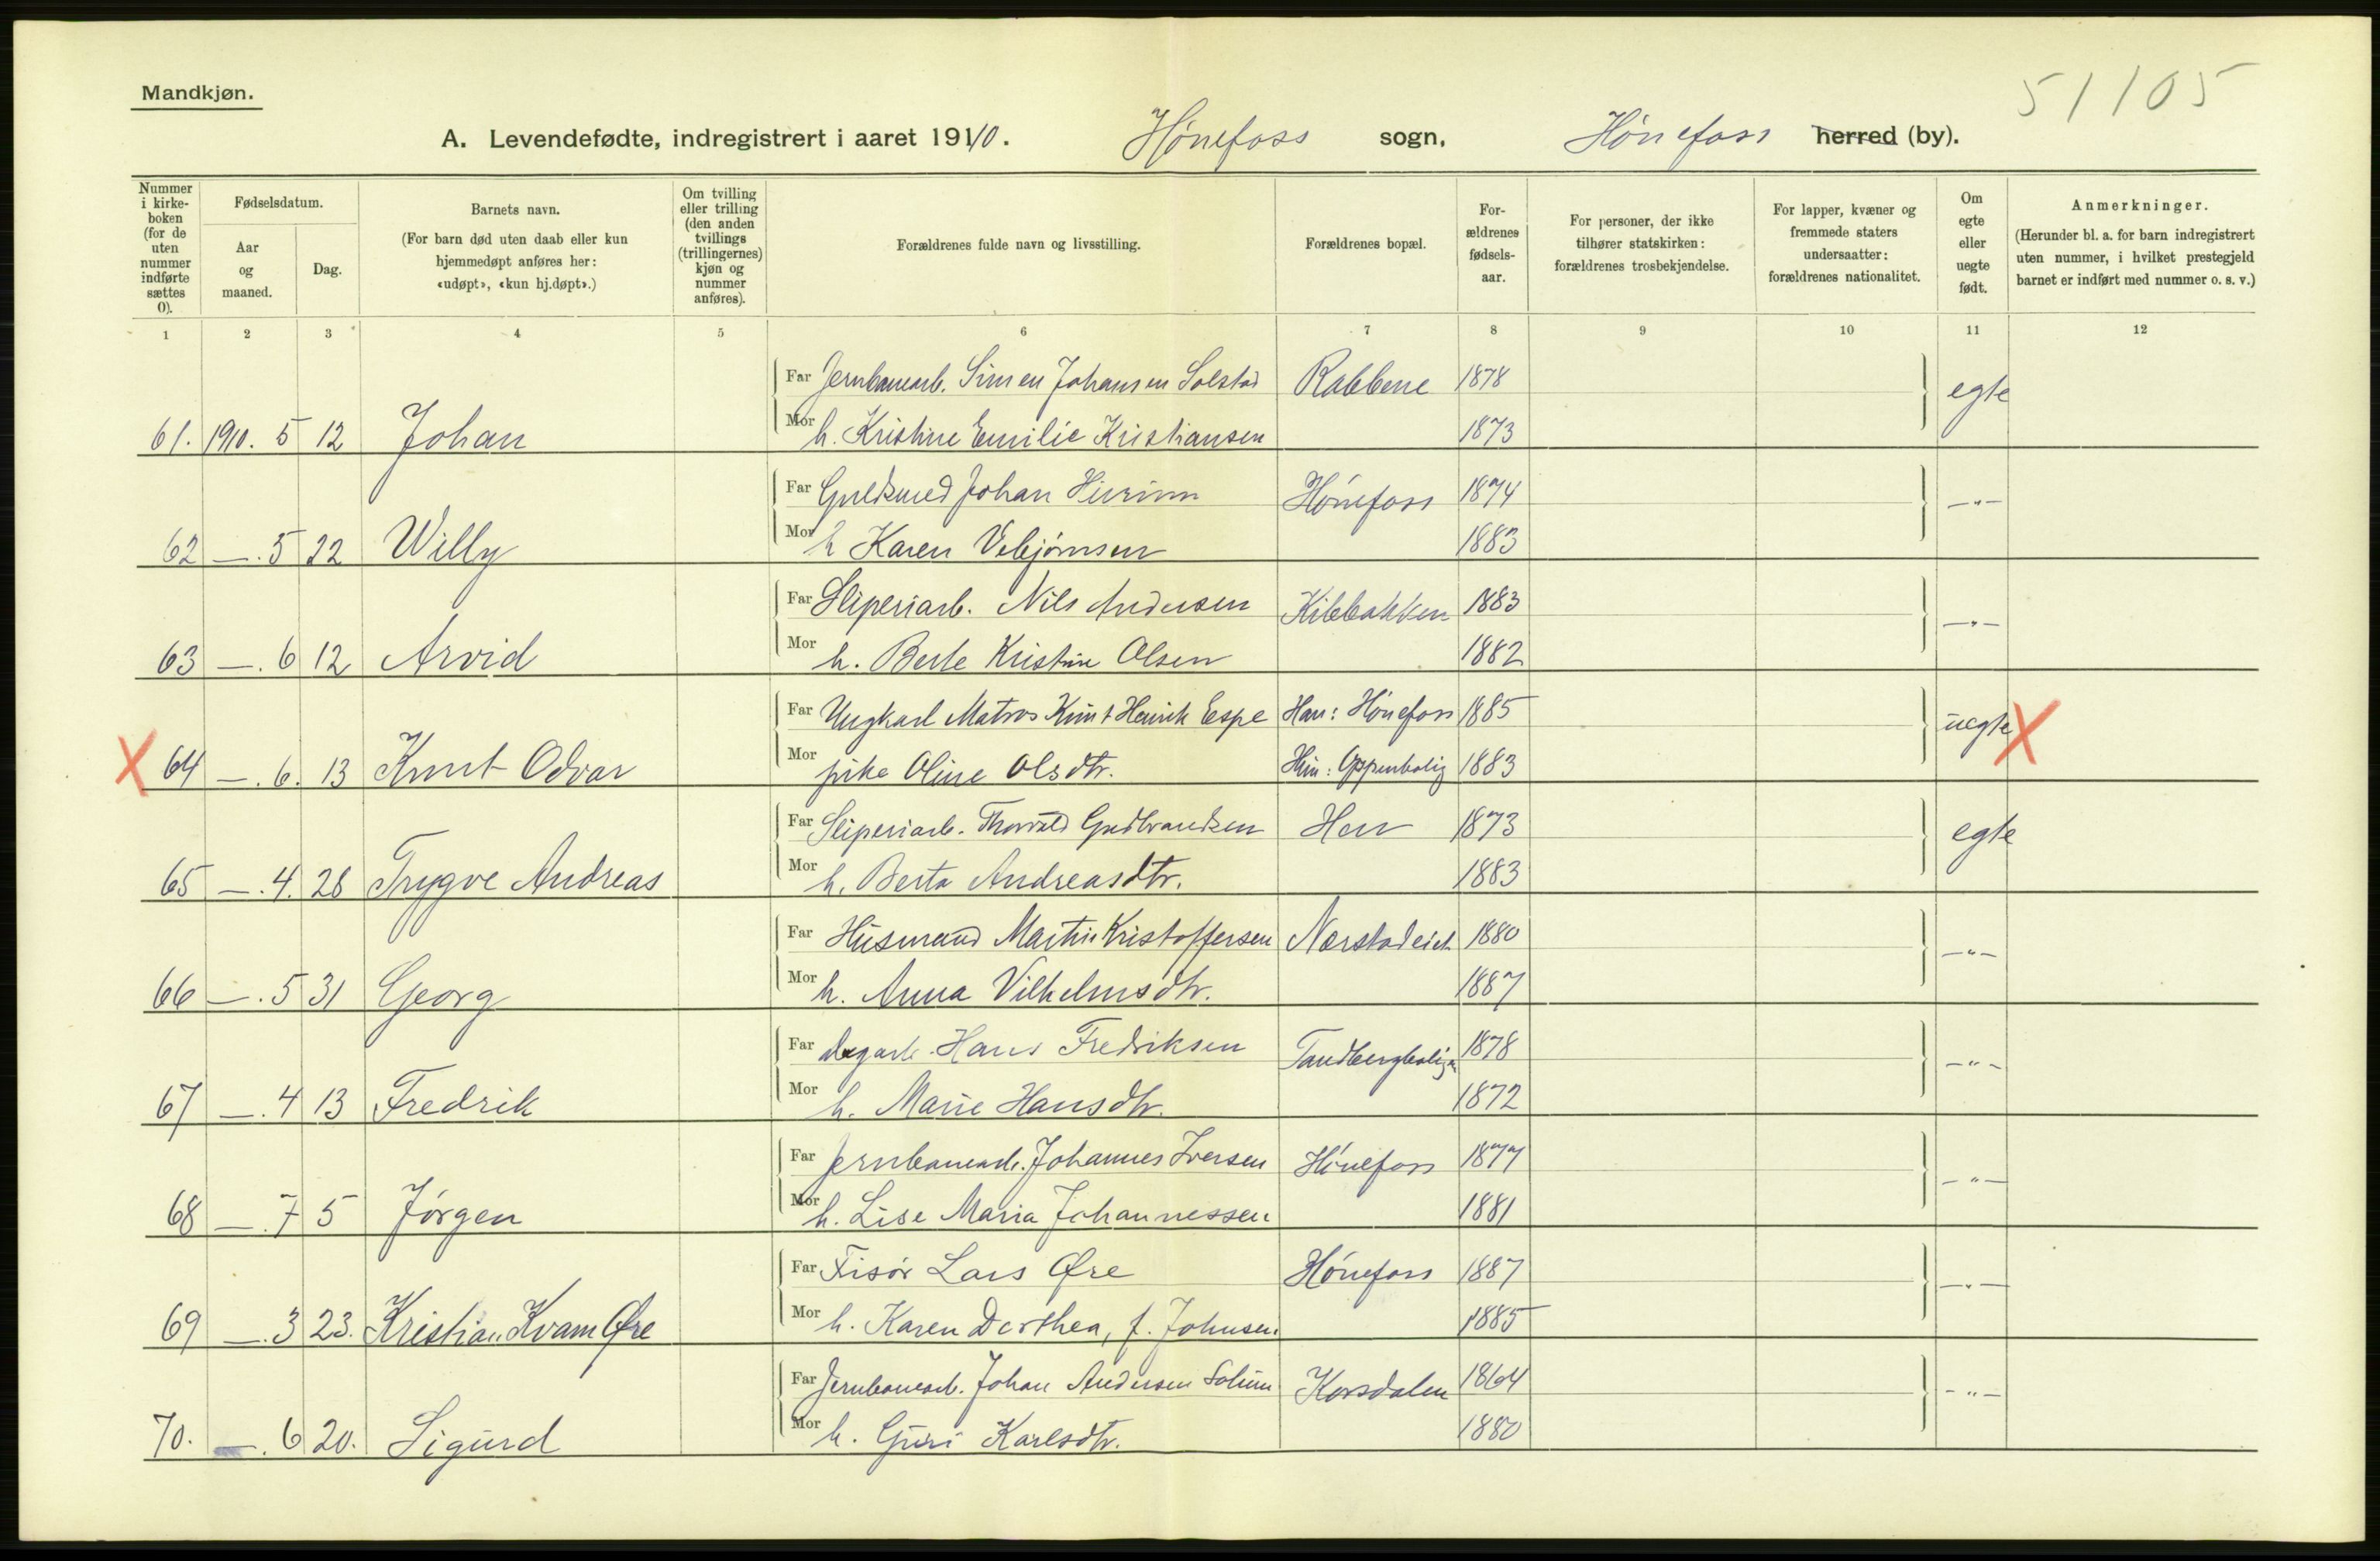 Mandkjøn.
51105
A. Levendefødte, indregistrert i aaret 1910. Hønefoss sogn, Hønefoss herred (by).
Nummer i kirke-boken (for de uten nummer indførte sættes 0).
Fødselsdatum.
Aar og maaned.
Dag.
Barnets navn.
(For barn død uten daab eller kun hjemmedøpt anføres her: «udøpt», «kun hj.døpt».)
Om tvilling eller trilling (den anden tvillings (trillingernes) kjøn og nummer anføres).
Forældrenes fulde navn og livsstilling.
Forældrenes bopæl.
For-ældrenes fødsels-aar.
For personer, der ikke tilhører statskirken: forældrenes trosbekjendelse.
For lapper, kvæner og fremmede staters undersaatter: forældrenes nationalitet.
Om egte eller uegte født.
Anmerkninger.
(Herunder bl. a. for barn indregistrert uten nummer, i hvilket prestegjeld barnet er indført med nummer o. s. v.)
1 2 3 4 5 6 7 8 9 10 11 12
Far Jernbanearb. Simen Johansen Solstad Rabbene 1878 egte
61. 1910. 5 12 Johan Mor h. Kristine Emilie Kristiansen 1873
Far Guldsmed Johan Hønefoss 1874 —"—
62 —. 5 22 Willy Mor h Karen Vebjørnsen 1883
Far Sliperiarb. Nils Andersen Kibbakken 1883 —"—
63 —. 6 12 Arvid Mor h. Berte Kristine Olsen 1882
Far Ungkarl Matros Knut Henrik Espe Han: Hønefoss 1885 uegte X
X 64 —. 6. 13 Knut Odvar Mor pike Oline Olsdtr. Hun: Oppenbolig 1883
Far Sliperiarb. Thorvald Gudbrandsen Hen 1873 egte
65 —. 4. 26 Trygve Andreas Mor h. Berta Andreasdtr. 1883
Far Husmand Martin Kristoffersen 1880 —"—
66 —. 5 31 Georg Mor h. Anna Vilhelmsdtr. 1887
Far Hans Fredriksen Tandbergbolig 1878 —"—
67 —. 4 13 Fredrik Mor h. Marie Hansdtr. 1872
Far Jernbanearb. Johannes Iversen Hønefoss 1877 —"—
68 —. 7 5 Jørgen Mor h. Lise Maria Johannessen 1881
Far Frisør Lars Øre Hønefoss 1887 —"—
69 —. 3 23. Kristian Kvam Øre Mor h. Karen Dorthea, f. Johnsen 1885
Far Jernbanearb. Johan Andersen Solum Korsdalen 1864 —"—
70. —. 6 20. Sigurd Mor h. Guri Karlsdtr. 1880